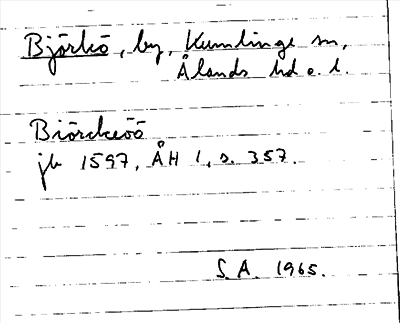 Björkö, by, Kumlinge sn,
Ålands hd o. l.
Biörckeöö
jb 1597, ÅH 1, s. 357.
S.A. 1965.